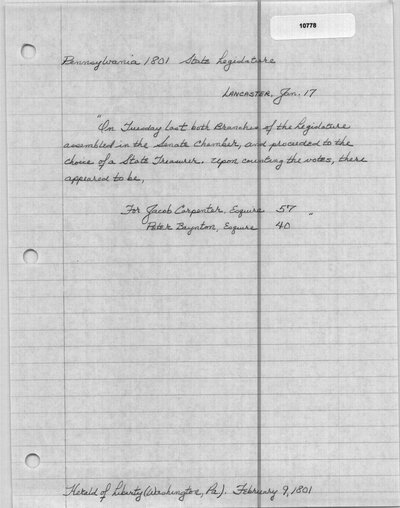 10778
Pennsylvania 1801 State Legislature
LANCASTER, Jan. 17
"On Tuesday last both Branches of the Legislature
assembled in the Senate Chamber, and proceeded to the
choice of a State Treasurer. Upon counting the votes, there
appeared to be,
For Jacob Carpenter, Esquire 57 "
Peter Baynton, Esquire 40
Herald of Liberty (Washington, Pa). February 9, 1801